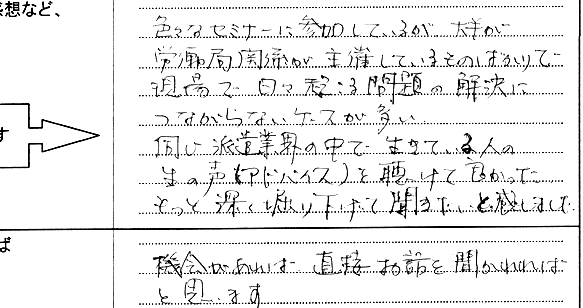 感想など、
色々なセミナーに参加しているが 大半が
労働局関係が主催しているものばかりで
現場で日々起こる問題の解決に
つながらないケースが多い
同じ派遣業界の中で生きている人の
生の声(アドバイス)を聴けて良かった
もっと深く掘り下げて聞きたいと感じました
す
ば
機会があれば 直接お話を聞かれれば
と思います